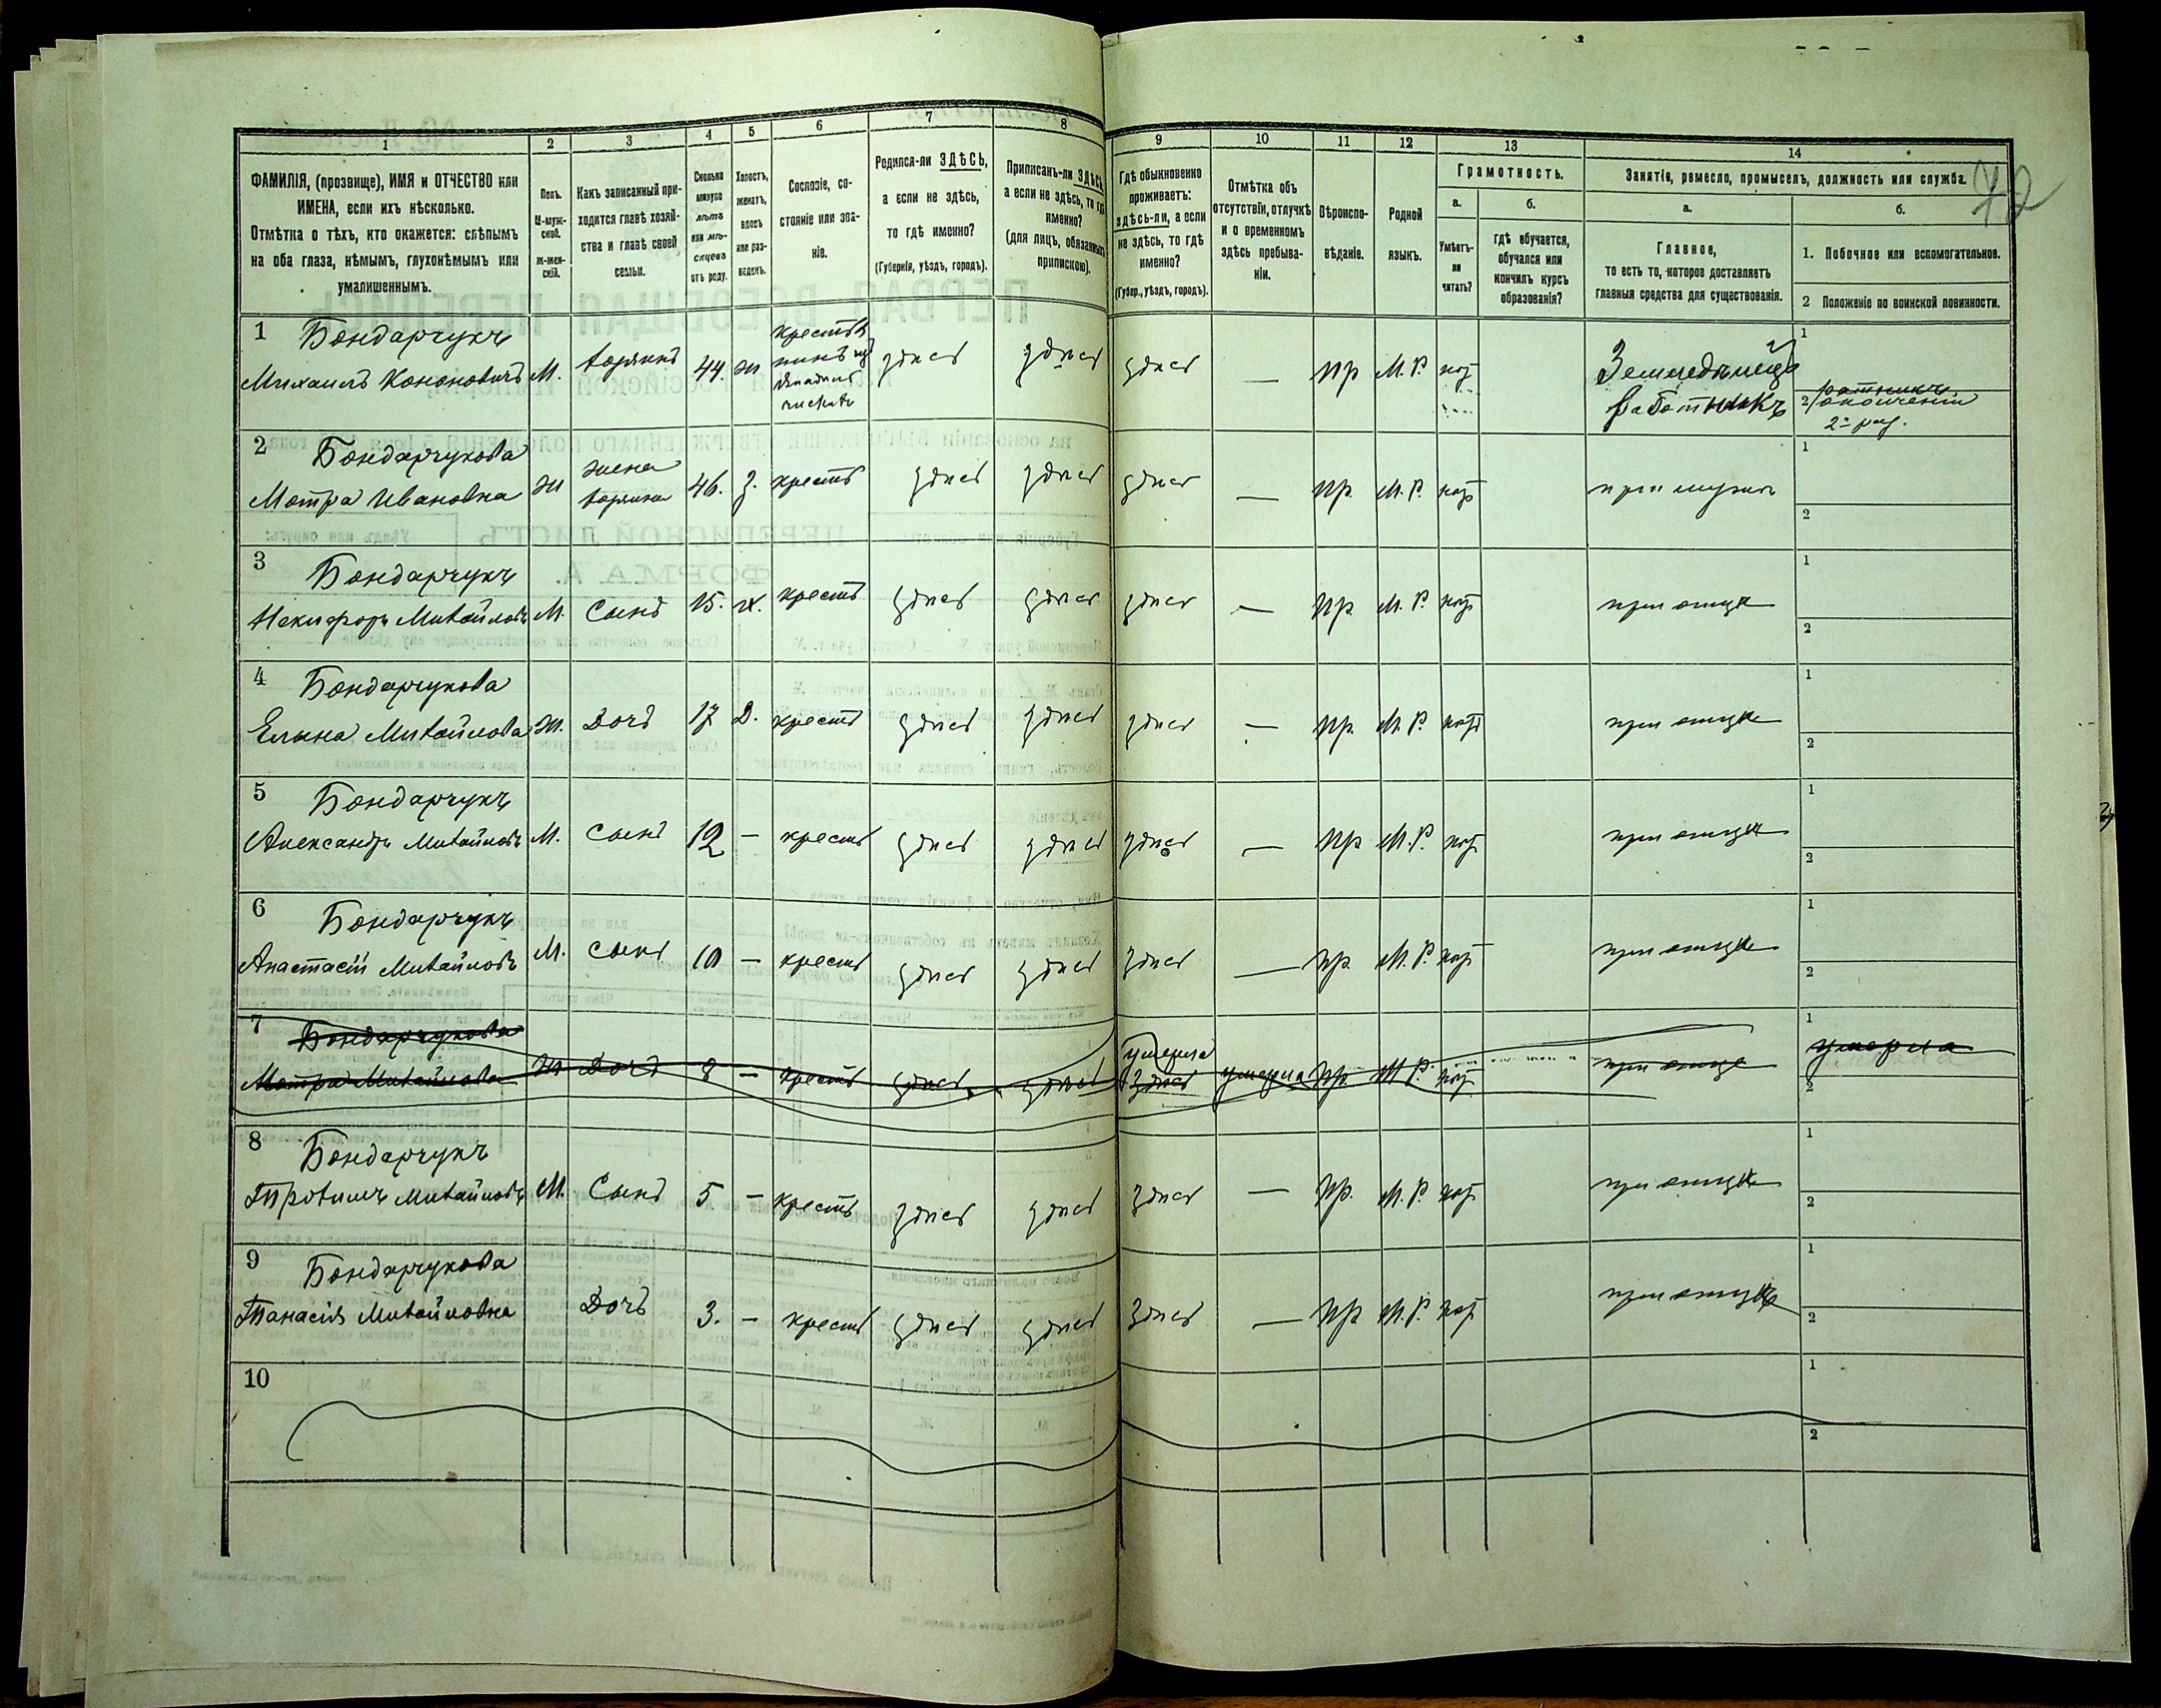 1 2 3 4 5 6 7 8 9 10 11 12 13 14
ФАМИЛІЯ, (прозвище), ИМЯ и ОТЧЕСТВО или
ИМЕНА, если ихъ нѣсколько.
Отмѣтка о тѣхъ, кто окажется: слѣпымъ
на оба глаза, нѣмымъ, глухонѣмымъ или
умалишеннымъ.
Полъ.
М-муж-
ской.
Ж-жен-
скій.
Какъ записанный при-
ходится главѣ хозяй-
ства и главѣ своей
семьи.
Сколько
минуло
лѣтъ
или мѣ-
сяцевъ
отъ роду.
Холостъ,
женатъ,
вдовъ
или раз-
веденъ.
Сословіе, со-
стояніе или зва-
ніе.
Родился-ли ЗДѢСЬ,
а если не здѣсь,
то гдѣ именно?
(Губернія, уѣздъ, городъ).
Приписанъ-ли ЗДѢСЬ,
а если не здѣсь, то гдѣ
именно?
(для лицъ, обязанныхъ
припискою).
Гдѣ обыкновенно
проживаетъ:
здѣсь-ли, а если
не здѣсь, то гдѣ
именно?
(Губер., уѣздъ, городъ).
Отмѣтка объ
отсутствіи, отлучкѣ
и о временномъ
здѣсь пребыва-
ніи.
Вѣроиспо-
вѣданіе.
Родной
языкъ.
Грамотность.
а.
Умѣетъ-
ли
читать?
б.
гдѣ обучается,
обучался или
кончилъ курсъ
образованія?
Занятіе, ремесло, промыселъ, должность или служба.
а.
Главное,
то есть то, которое доставляетъ
главныя средства для существованія.
б.
1. Побочное или вспомогательное.
2 Положеніе по воинской повинности.
72
1 Бондарчукъ
Михаилъ Кононовичъ М. 44. ж здѣсь здѣсь здѣсь — пр М. Р. нѣт
Земледѣлецъ
работникъ
1
2 ратникъ
ополченія
2 раз.
2 Бондарчукова
Мотра Ивановна ж жена 46. з. крестъ здѣсь здѣсь здѣсь — пр. М. Р. нѣт при мужѣ
1
2
3 Бондарчукъ
Никифоръ Михайловъ М. Сынъ 15. х. крестъ здѣсь здѣсь здѣсь — пр. М. Р. нѣт при отцѣ
1
2
4 Бондарчукова
Елына Михайлова Ж. Дочь 17 Д. крестъ здѣсь здѣсь здѣсь — пр. М. Р. нѣт при отцѣ
1
2
5 Бондарчукъ
Александръ Михайловъ М. Сынъ 12 — крестъ здѣсь здѣсь здѣсь — пр М. Р. нѣт при отцѣ
1
2
6 Бондарчукъ
Анастасій Михайловъ М. Сынъ 10 — крестъ здѣсь здѣсь здѣсь — пр. М. Р. нѣт при отцѣ
1
2
7 Бондарчукова
Мотра Михайлова Ж Дочь 8 — крестъ здѣсь здѣсь умерла здѣсь умерла пр М Р. нѣт при отцѣ
1 умерла
2
8 Бондарчукъ
Трохимъ Михайловъ М. Сынъ 5 — крестъ здѣсь здѣсь здѣсь — пр. М. Р. нѣт при отцѣ
1
2
9 Бондарчукова
Танасія Михайловна Дочь 3. — крестъ здѣсь здѣсь здѣсь — пр М. Р. нѣт при отцѣ
1
2
10
1
2